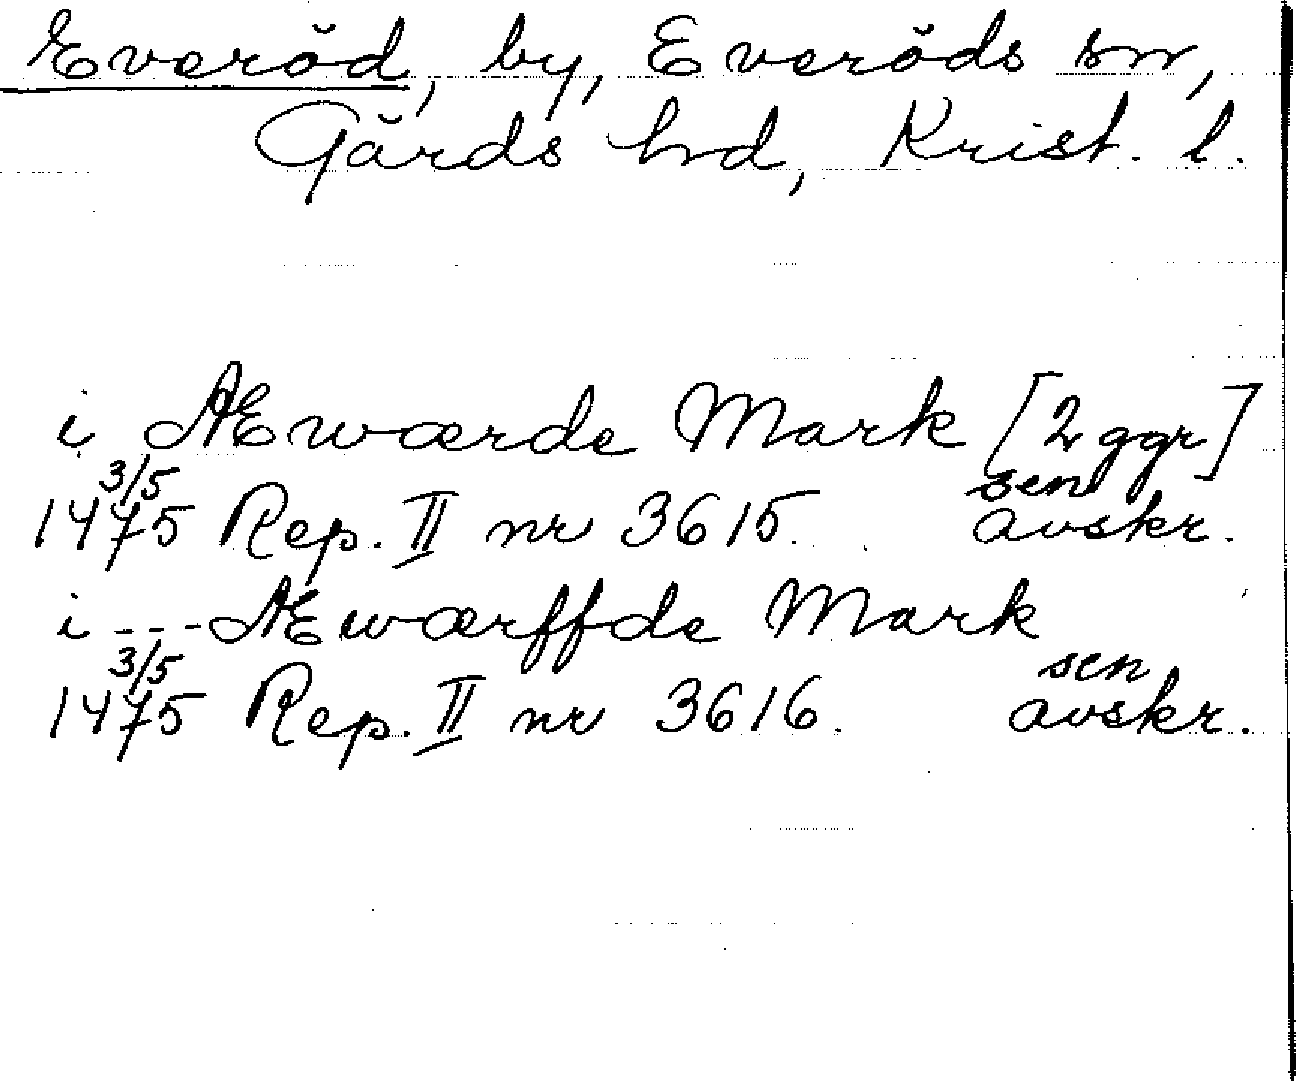 Everöd, by, Everöds sn,
Gärds hd, Krist. l.
i Æwærde Mark [2 ggr]
3/5 sen
1475 Rep. II nr 3615. avskr.
i --- Æwærffde Mark
3/5 sen
1475 Rep. II nr 3616. avskr.